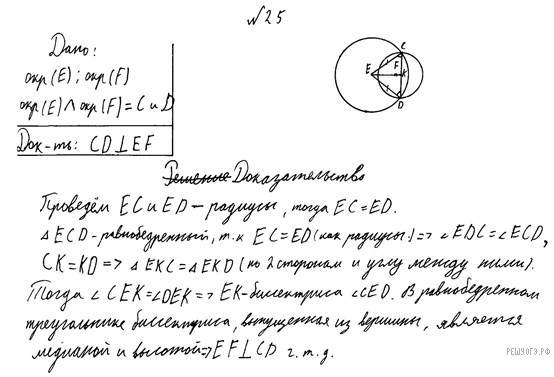 №25
Дано:
окр(E); окр(F)
окр(E) ∧ окр(F) = C и D
Док-ть: CD⊥EF
C
E F K
D
Решение Доказательство
Проведём EC и ED – радиусы, тогда EC = ED.
△ECD – равнобедренный, т.к EC = ED (как радиусы.) => ∠EDC = ∠ECD,
CK = KD => △EKC = △EKD (по 2 сторонам и углу между ними).
Тогда ∠CEK = ∠DEK => EK – биссектриса ∠CED. В равнобедренном
треугольнике биссектриса, выпущенная из вершины, является
медианой и высотой => EF⊥CD ч.т.д.
РЕШУОГЭ.РФ